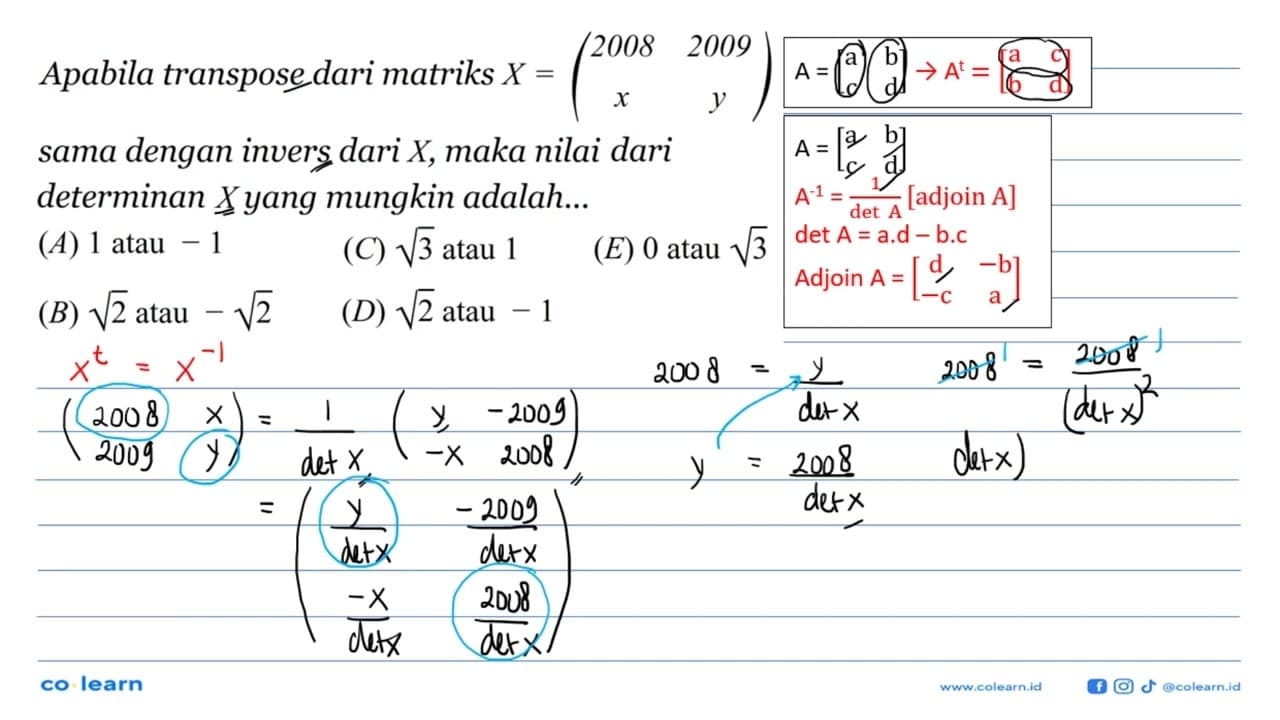 Apabila transpose dari matriks X = (2008 2009
x y)
sama dengan invers dari X, maka nilai dari
determinan X yang mungkin adalah...
(A) 1 atau − 1
(C) √3 atau 1
(E) 0 atau √3
(B) √2 atau − √2
(D) √2 atau − 1
A = [a b
c d] → Aᵗ = [a c
b d]
A = [a b
c d]
A⁻¹ = 1/det A [adjoin A]
det A = a.d – b.c
Adjoin A = [d −b
−c a]
x^t = x^-1
(2008 x
2009 y) = 1/det X (y -2009
-x 2008)
= (y/det x -2009/det x
-x/det x 2008/det x)
2008 = y/det x
y = 2008/det x
2008 1 = 2008 1/(det x)²
det x)
co·learn
www.colearn.id
@colearn.id